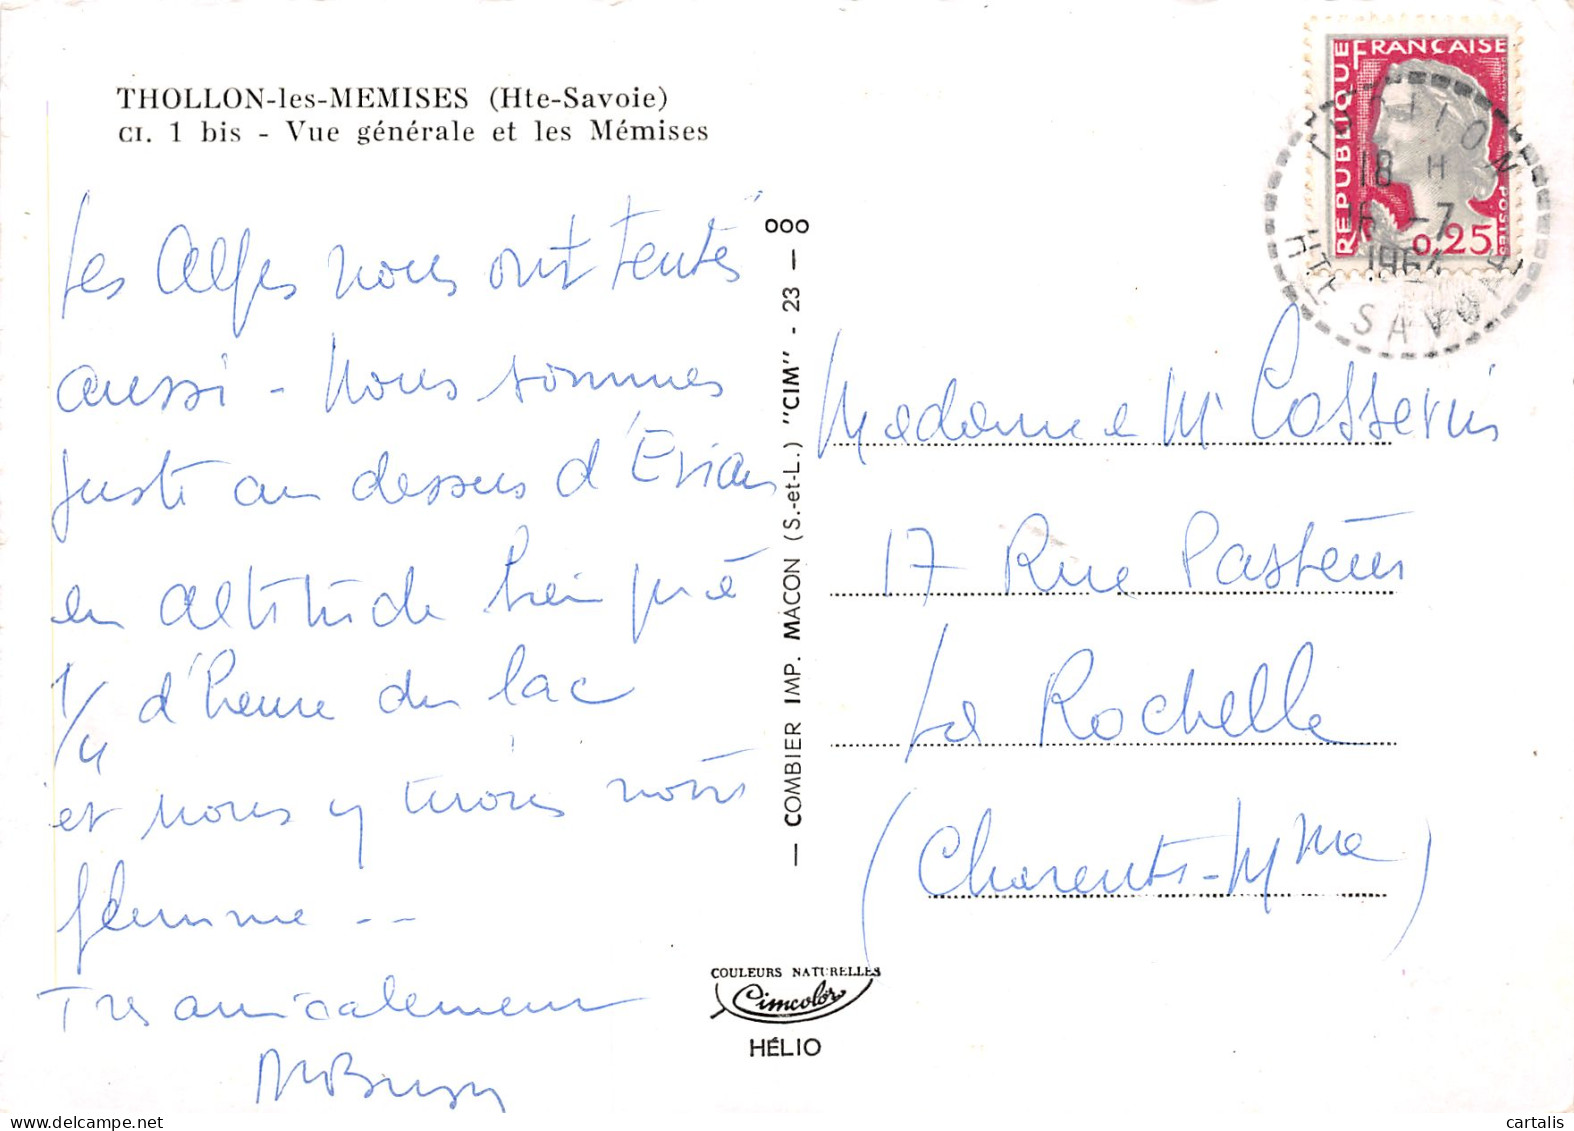 THOLLON-les-MEMISES (Hte-Savoie)
CI. 1 bis - Vue générale et les Mémises
Les Alpes nous ont tentés
aussi - Nous sommes
juste au dessus d'Évian
en altitude bien qu'à
1/4 d'heure du lac
et nous y tirons notre
flemme --
Très amicalement
— COMBIER IMP. MACON (S.-et-L.) "CIM" - 23 — 000
COULEURS NATURELLES
Cimcolor
HÉLIO
RÉPUBLIQUE FRANÇAISE
POSTES
0,25
THOLLON
18 H
16 -7
1964
HTE SAVOIE
Madame e Mr Cosserin
17 Rue Pasteur
La Rochelle
(Charente-Mme)
cartalis